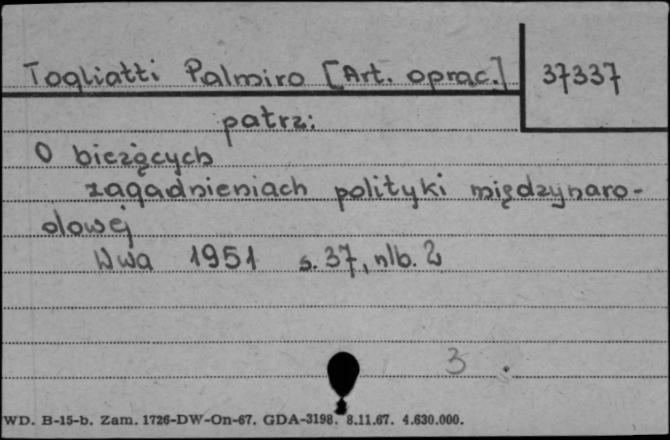 Togliatti Palmiro [Art. oprac.] 37337
patrz:
O bieżących
zagadnieniach polityki międzynaro-
dowej
Wwa 1951 s. 37, nlb. 2
3
WD. B-15-b. Zam. 1726-DW-On-67. GDA-3198. 8.11.67. 4.630.000.